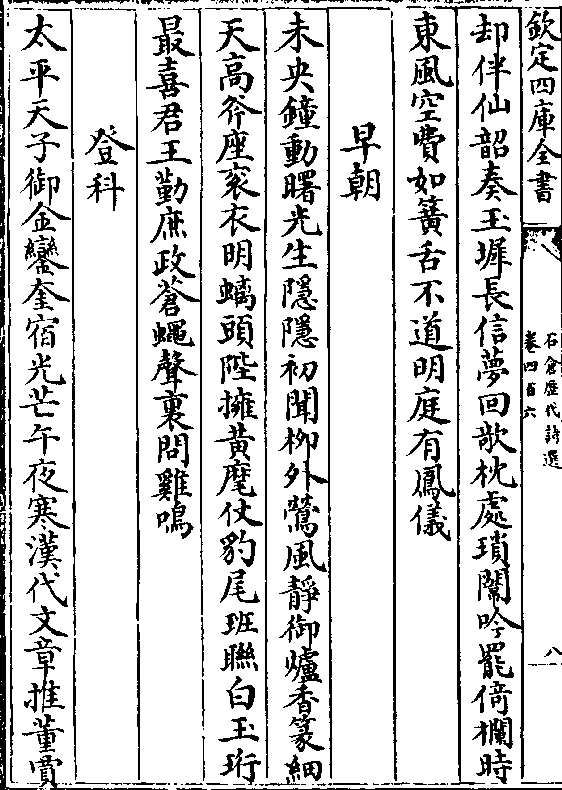 欽定四庫全書
石倉歷代詩選
卷四百六
八
却伴仙韶奏玉墀長信夢回欹枕處瑣闈吟罷倚欄時
東風空費如簧舌不道明庭有鳳儀
早朝
未央鐘動曙光生隱隱初聞柳外鶯風靜御爐香篆細
天高斧座袞衣明螭頭陛擁黄麾仗豹尾班聯白玉珩
最喜君王勤庶政蒼蠅聲裏問雞鳴
登科
太平天子御金鑾奎宿光芒午夜寒漢代文章推董賈